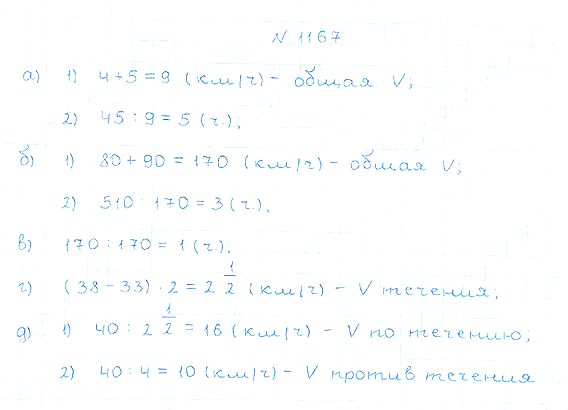 N 1167
а) 1) 4+5=9 (км/ч) - общая V;
2) 45 : 9 = 5 (ч.);
б) 1) 80 + 90 = 170 (км/ч) - общая V;
2) 510 : 170 = 3 (ч.),
в) 170 : 170 = 1 (ч.),
г) (38 - 33) · 2 = 2 1/2 (км/ч) - V течения;
д) 1) 40 : 2 1/2 = 16 (км/ч) - V по течению;
2) 40 : 4 = 10 (км/ч) - V против течения